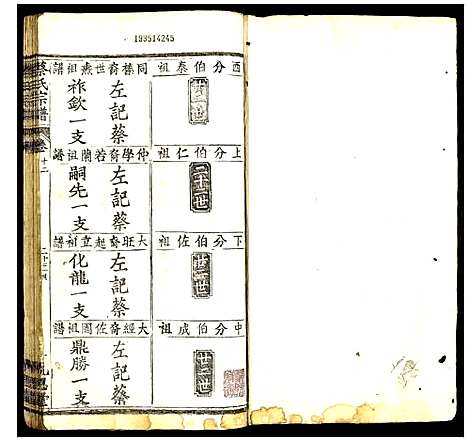 193514245
西分伯泰祖
廿二世
同榛裔世燕祖譜
左記蔡
祚欽一支
上分伯仁祖
二十三世
仲學裔若蘭祖譜
左記蔡
嗣先一支
下分伯佐祖
廿三世
大旺裔起立祖譜
左記蔡
化龍一支
中分伯成祖
廿三世
大經裔佐國祖譜
左記蔡
鼎勝一支
蔡氏宗譜
卷